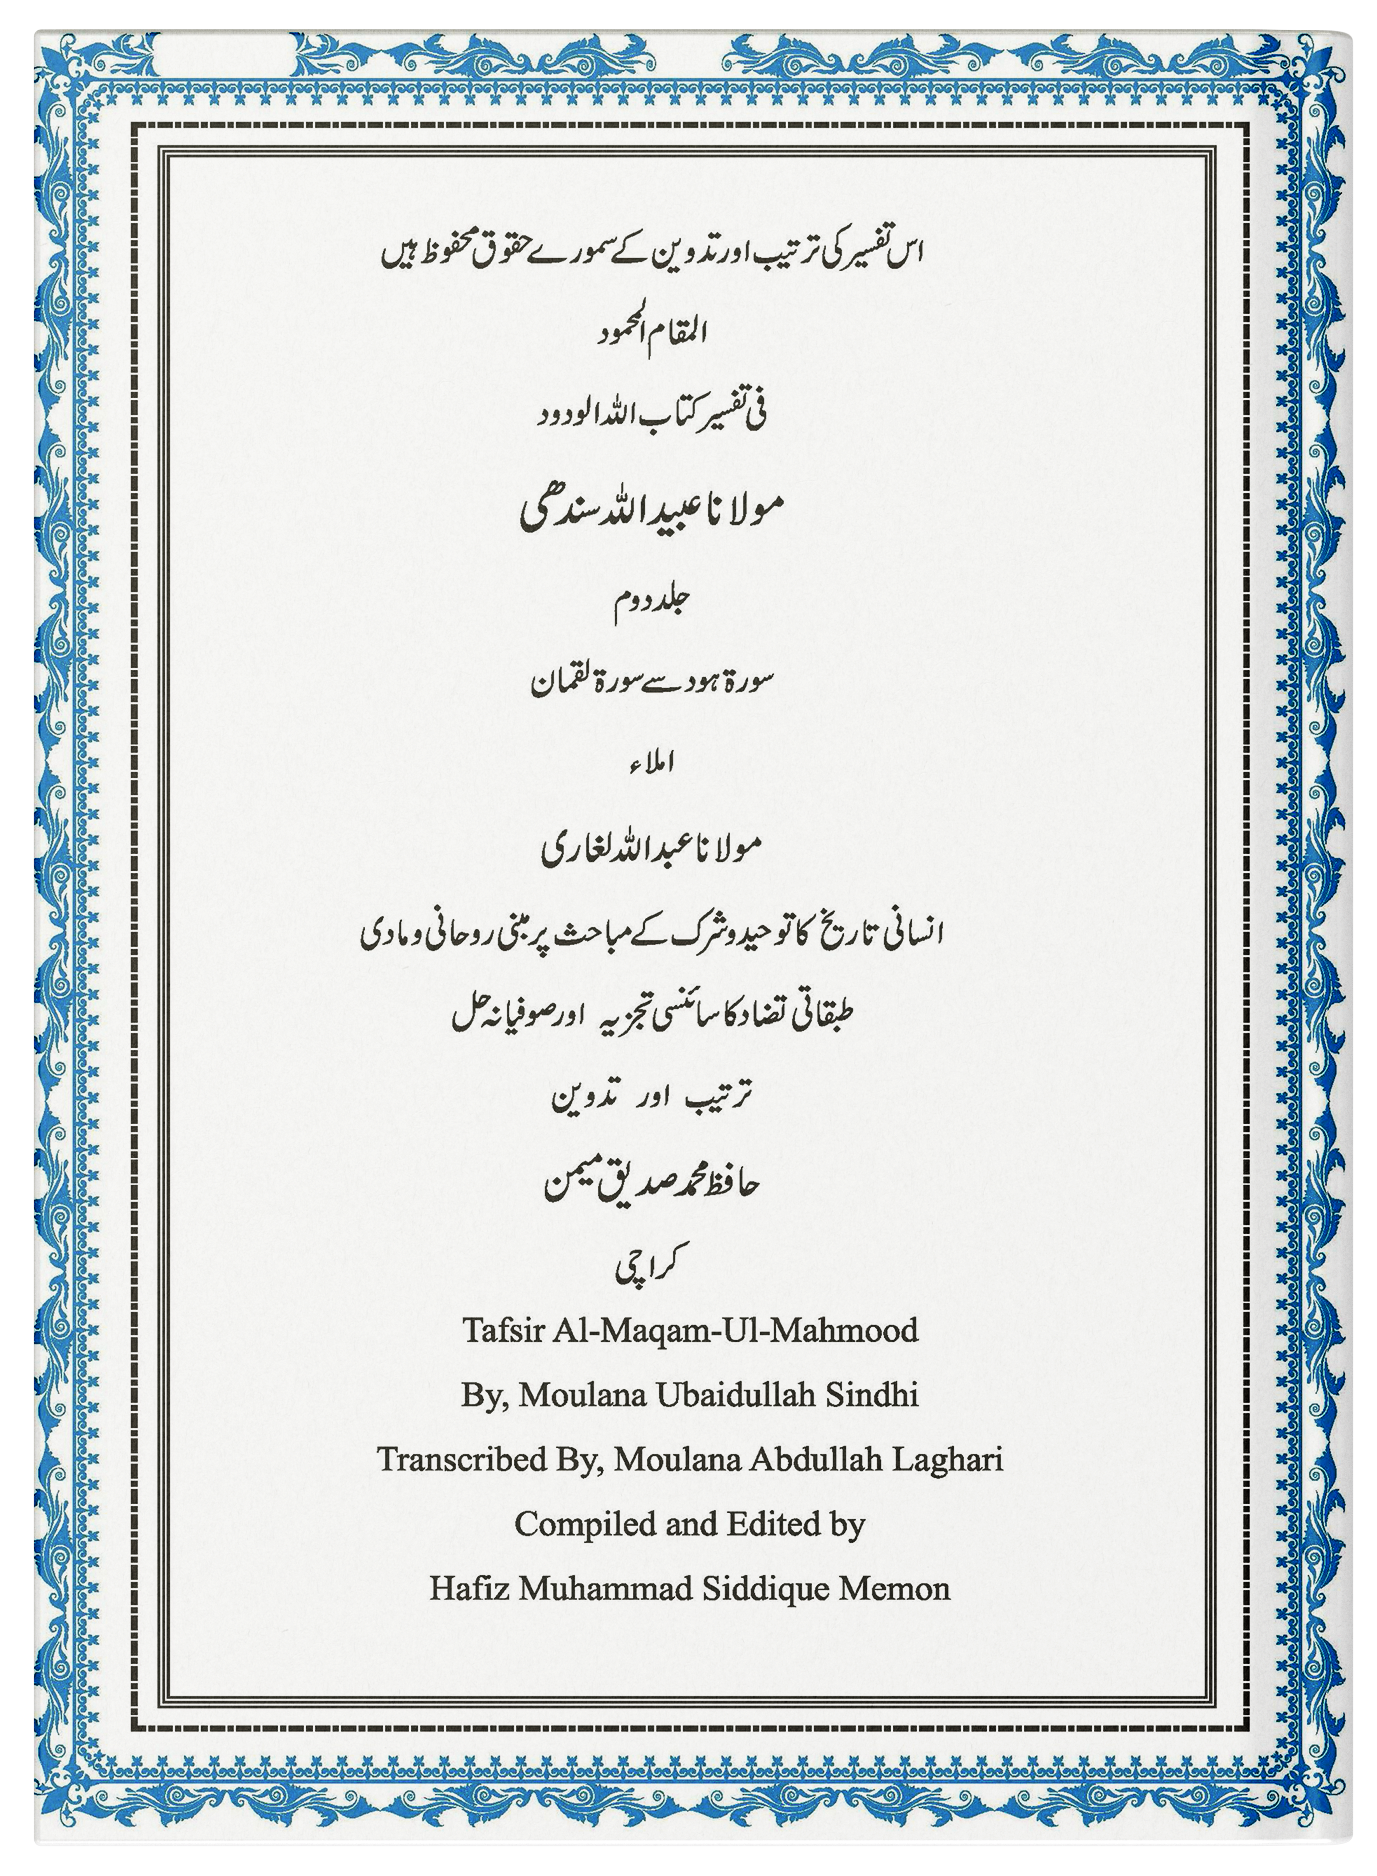 اس تفسیر کی ترتیب اور تدوین کے سمورے حقوق محفوظ ہیں
المقام المحمود
فی تفسیر کتاب اللہ الودود
مولانا عبید اللہ سندھی
جلد دوم
سورۃ ہود سے سورۃ لقمان
املاء
مولانا عبد اللہ لغاری
انسانی تاریخ کا توحید و شرک کے مباحث پر مبنی روحانی و مادی
طبقاتی تضاد کا سائنسی تجزیہ اور صوفیانہ حل
ترتیب اور تدوین
حافظ محمد صدیق میمن
کراچی
Tafsir Al-Maqam-Ul-Mahmood
By, Moulana Ubaidullah Sindhi
Transcribed By, Moulana Abdullah Laghari
Compiled and Edited by
Hafiz Muhammad Siddique Memon